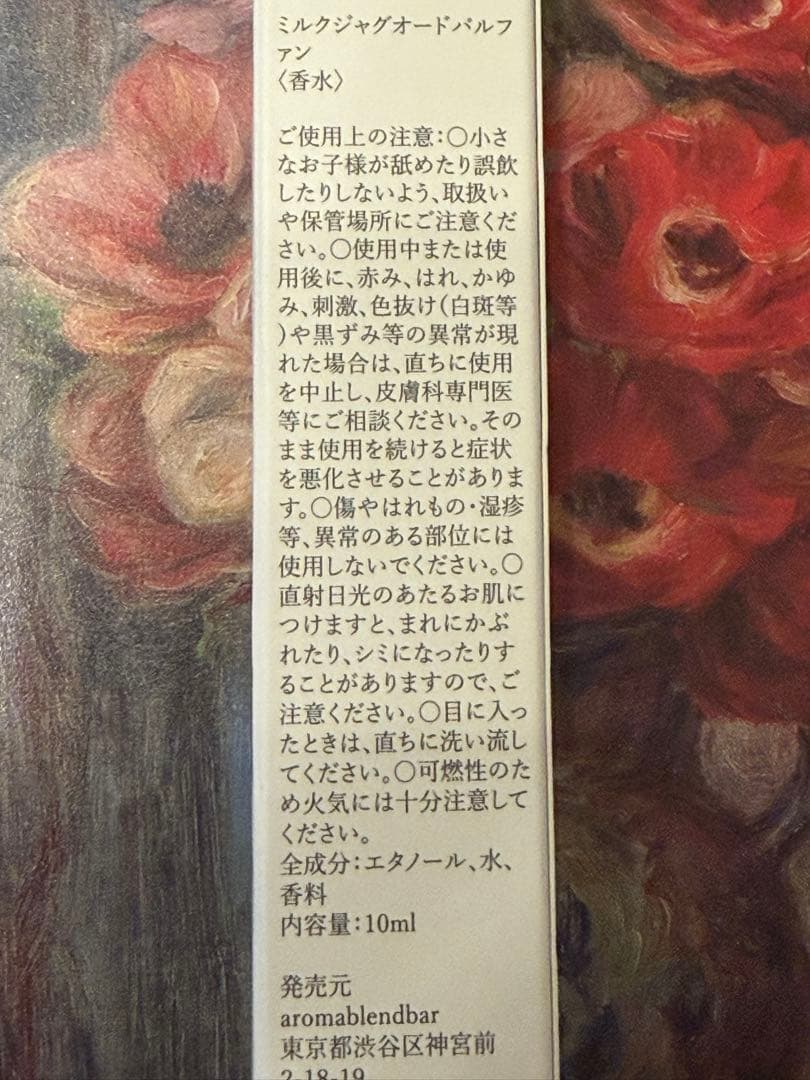 ミルクジャグオードパルフ
ァン
〈香水〉
ご使用上の注意:○小さ
なお子様が舐めたり誤飲
したりしないよう、取扱い
や保管場所にご注意くだ
さい。○使用中または使
用後に、赤み、はれ、かゆ
み、刺激、色抜け(白斑等
)や黒ずみ等の異常が現
れた場合は、直ちに使用
を中止し、皮膚科専門医
等にご相談ください。その
まま使用を続けると症状
を悪化させることがありま
す。○傷やはれもの・湿疹
等、異常のある部位には
使用しないでください。○
直射日光のあたるお肌に
つけますと、まれにかぶ
れたり、シミになったりす
ることがありますので、ご
注意ください。○目に入っ
たときは、直ちに洗い流し
てください。○可燃性のた
め火気には十分注意して
ください。
全成分:エタノール、水、
香料
内容量:10ml
発売元
aromablendbar
東京都渋谷区神宮前
2-18-19